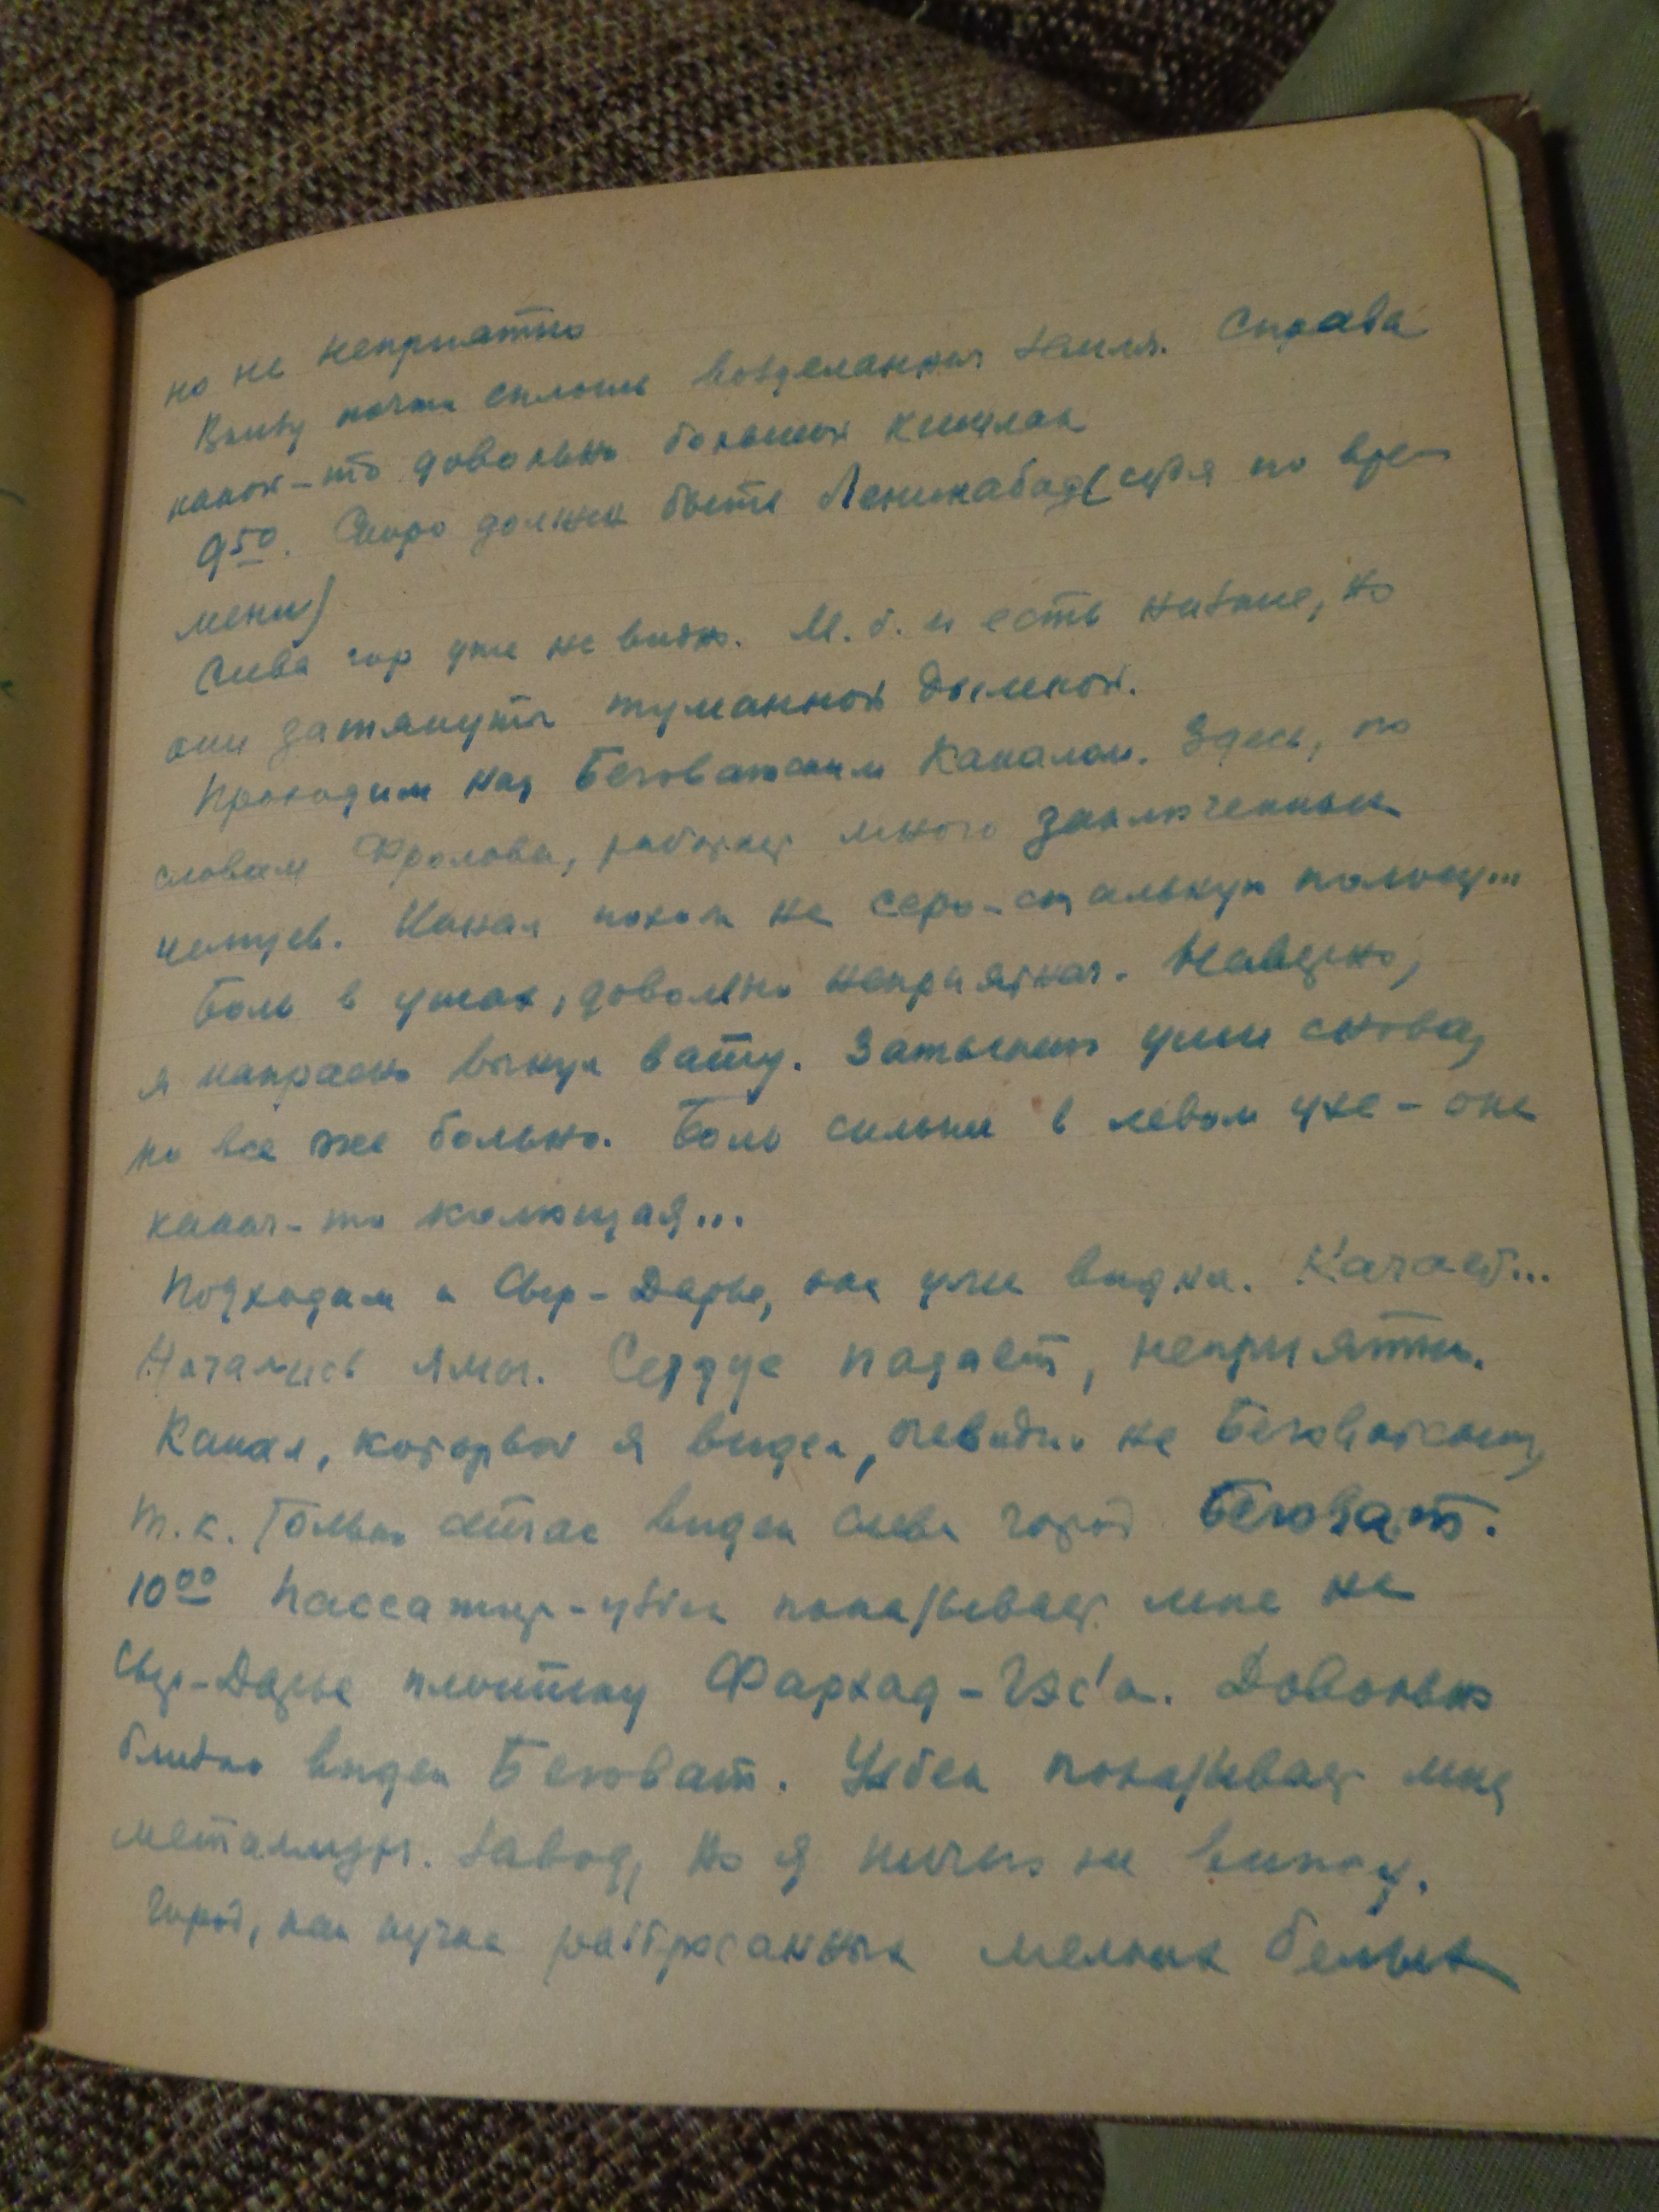 но не неприятно
Внизу почти сплошь возделанная земля. Справа
какой-то довольно большой кишлак
9⁵⁰. Скоро должен быть Ленинабад (судя по вре-
мени)
Слева гор уже не видно. М. б. и есть низкие, но
они затянуты туманной дымкой.
Проходим над Беговатским каналом. Здесь, по
словам Фролова, работает много заключенных
немцев. Канал похож на серо-стальную полосу...
Боль в ушах, довольно неприятная. Наверно,
я напрасно вынул вату. Затыкаю уши снова,
но все же больно. Боль сильнее в левом ухе – она
какая-то колющая...
Подходим к Сыр-Дарье, она уже видна. Качает...
Начались ямы. Сердце падает, неприятно.
Канал, который я видел, очевидно не Беговатский,
т.к. только сейчас виден слева город Беговат.
10⁰⁰ Пассажир-узбек показывает мне на
Сыр-Дарье плотину Фархад-Гэс'а. Довольно
близко виден Беговат. Узбек показывает мне
металлург. завод, но я ничего не вижу.
Город, как кучка разбросанных мелких белых